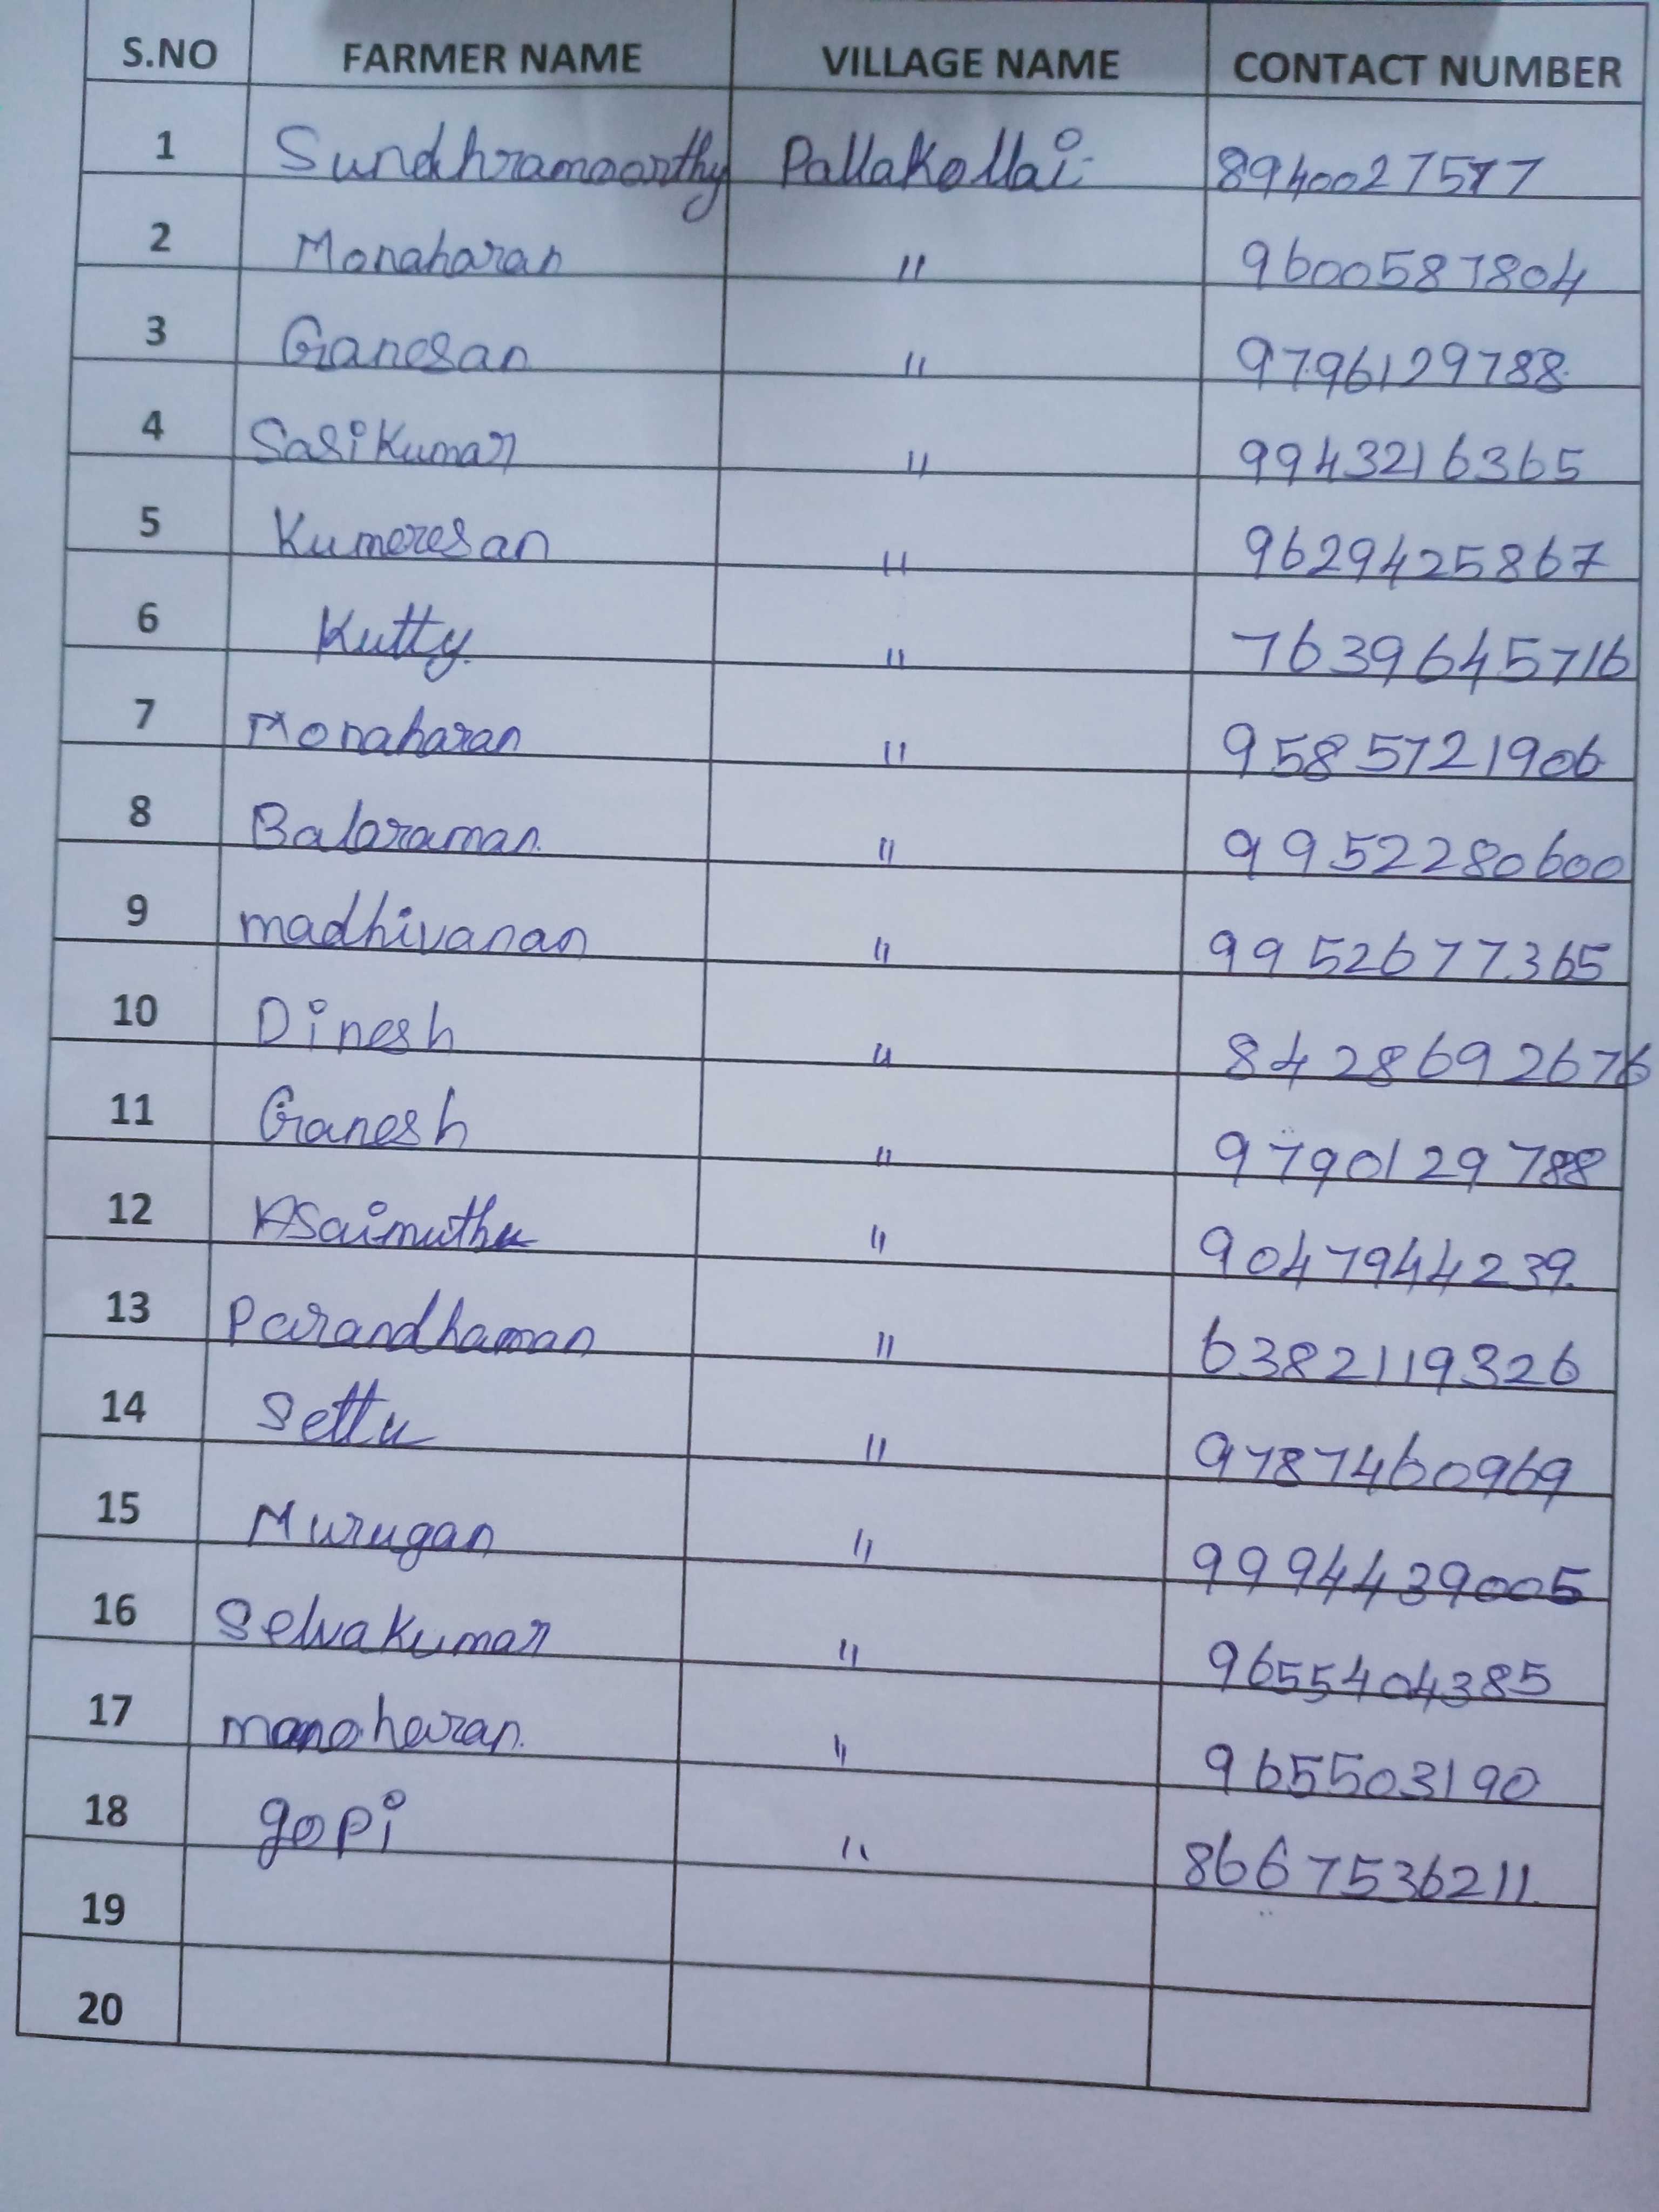 S.NO FARMER NAME VILLAGE NAME CONTACT NUMBER
1 Sundhramoorthy Pallakollai 8940027577
2 Monaharan " 9600587804
3 Ganesan " 9796129788
4 Sasikumar " 9943216365
5 Kumeresan " 9629425867
6 Kutty " 7639645716
7 Monaharan " 9585721906
8 Balaraman " 9952280600
9 madhivanan " 9952677365
10 Dinesh " 8428692676
11 Ganesh " 9790129788
12 Asaimuthu " 9047944239
13 Parandhaman " 6382119326
14 Settu " 9787460969
15 Murugan " 9994439005
16 Selvakumar " 9655404385
17 manoharan " 965503190
18 gopi " 8667536211
19
20